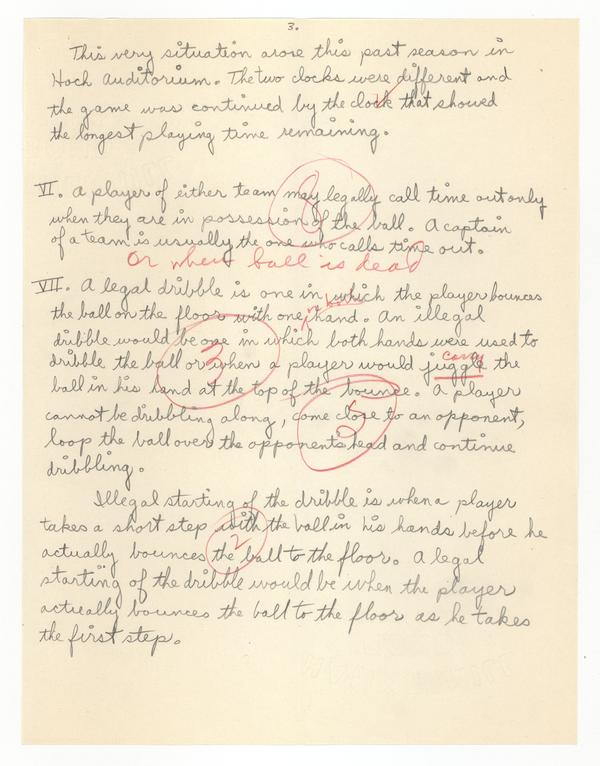 3.
This very situation arose this past season in
Hoch Auditorium. The two clocks were different and
the game was continued by the clock that showed
the longest playing time remaining.
VI. A player of either team may legally call time out only
when they are in possession of the ball. A captain
of a team is usually the one who calls time out.
Or when ball is dead
VII. A legal dribble is one in which the player bounces
the ball on the floor with one hand. An illegal
dribble would be one in which both hands were used to
carry
dribble the ball or when a player would juggle the
3
ball in his hand at the top of the bounce. A player
5
cannot be dribbling along, come close to an opponent,
loop the ball over the opponents head and continue
dribbling.
Illegal starting of the dribble is when a player
takes a short step with the ball in his hands before he
2
actually bounces the ball to the floor. A legal
starting of the dribble would be when the player
actually bounces the ball to the floor as he takes
the first step.